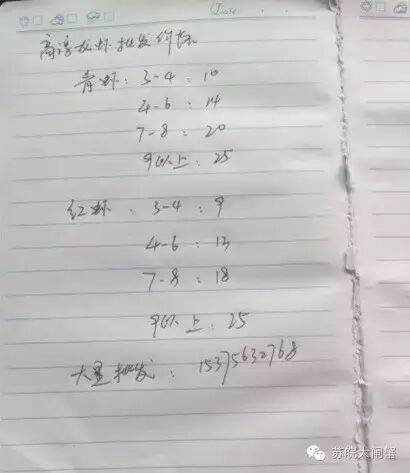 Date
高淳龙虾批发价格
青虾: 3-4: 10
4-6: 14
7-8: 20
9以上: 25
红虾: 3-4: 9
4-6: 13
7-8: 18
9以上: 25
大量批发: 15375632768
苏皖大闸蟹